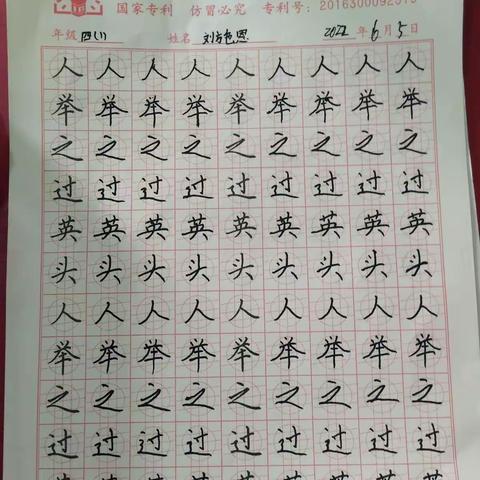 国家专利 仿冒必究 专利号:
年级 四(1) 姓名 2022年6月5日
人人人人人人人人人
举举举举举举举举举
之之之之之之之之之
过过过过过过过过过
英英英英英英英英英
头头头头头头头头头
人人人人人人人人人
举举举举举举举举举
之之之之之之之之之
过过过过过过过过过